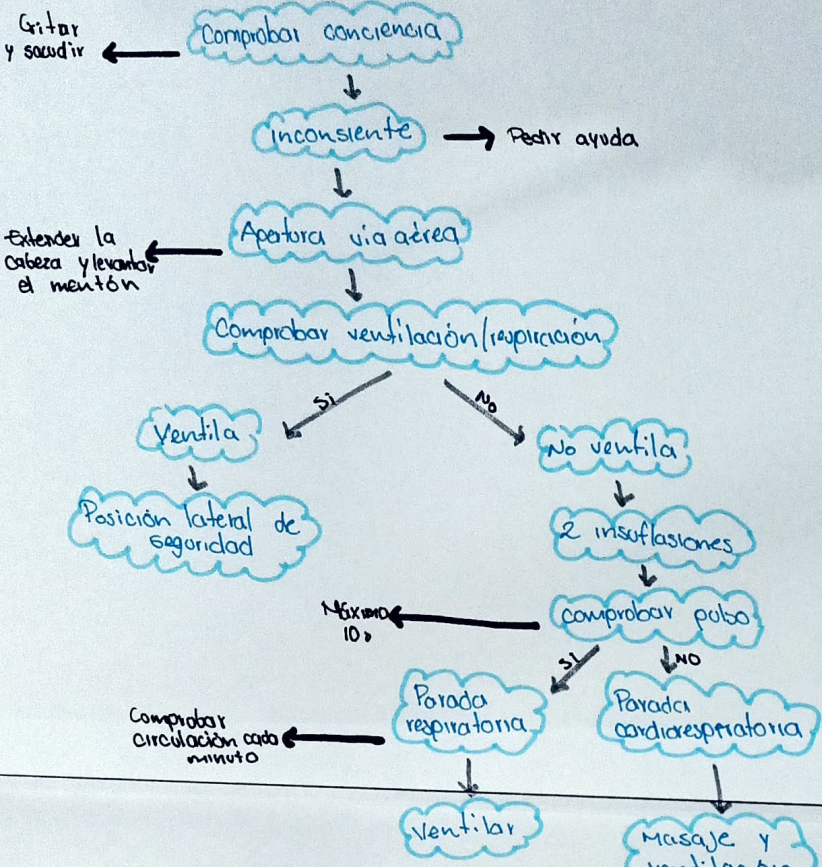 Gritar
y sacudir
Comprobar conciencia
inconsiente
Pedir ayuda
Apertura via aérea
Extender la
cabeza y levantar
el mentón
Comprobar ventilación/respiración
Si
No
Ventila
No ventila
Posición lateral de
seguridad
2 insuflasiones
Máximo
10s
comprobar pulso
Si
NO
Parada
respiratoria
Parada
cardiorespiratoria
Comprobar
circulación cada
minuto
Ventilar
Masaje y